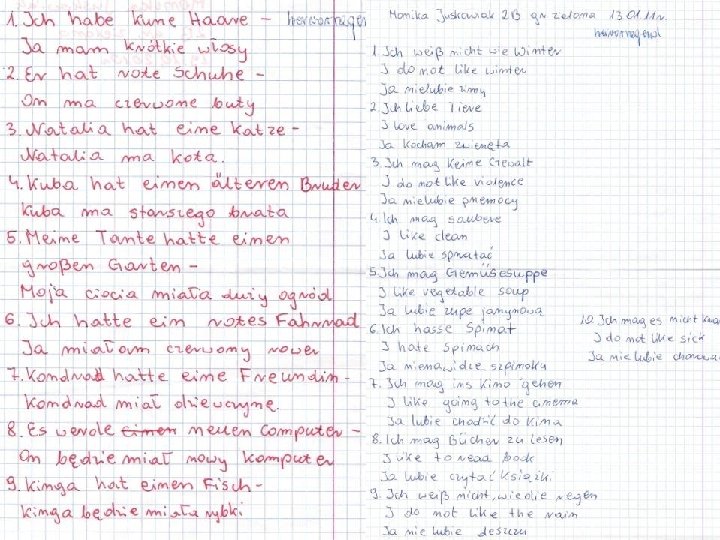 1. Ich habe kurze Haare - hervorragend
Ja mam krótkie włosy
2. Er hat rote Schuhe -
On ma czerwone buty
3. Natalia hat eine Katze -
Natalia ma kota.
4. Kuba hat einen älteren Bruder
Kuba ma starszego brata
5. Meine Tante hatte einen
großen Garten -
Moja ciocia miała duży ogród
6. Ich hatte ein rotes Fahrrad
Ja miałam czerwony rower
7. Kondrad hatte eine Freundin -
Kondrad miał dziewczynę.
8. Es werole einen neuen Computer -
On będzie miał nowy komputer
9. Kinga hat einen Fisch -
Kinga będzie miała rybki
Monika Juskowiak 2B gr zielona 13.01.11r.
hervorragend
1. Ich weiß nicht wie Winter
I do not like winter
Ja nielubie zimy
2. Ich liebe Tiere
I love animals
Ja kocham zwierzęta
3. Ich mag keine Gewalt
I do not like violence
Ja nielubie przemocy
4. Ich mag saubere
I like clean
Ja lubie sprzątać
5. Ich mag Gemüsesuppe
I like vegetable soup
Ja lubie zupe jarzynowa
6. Ich hasse Spinat
I hate spinach
Ja nienawidze szpinaku
7. Ich mag ins Kino gehen
I like going to the cinema
Ja lubie chodzić do kina
8. Ich mag Bücher zu lesen
I like to read book
Ja lubie czytać książki
9. Ich weiß nicht, wie die regen
I do not like the rain
Ja nie lubie deszczu
10. Ich mag es nicht
I do not like sick
Ja nie lubie